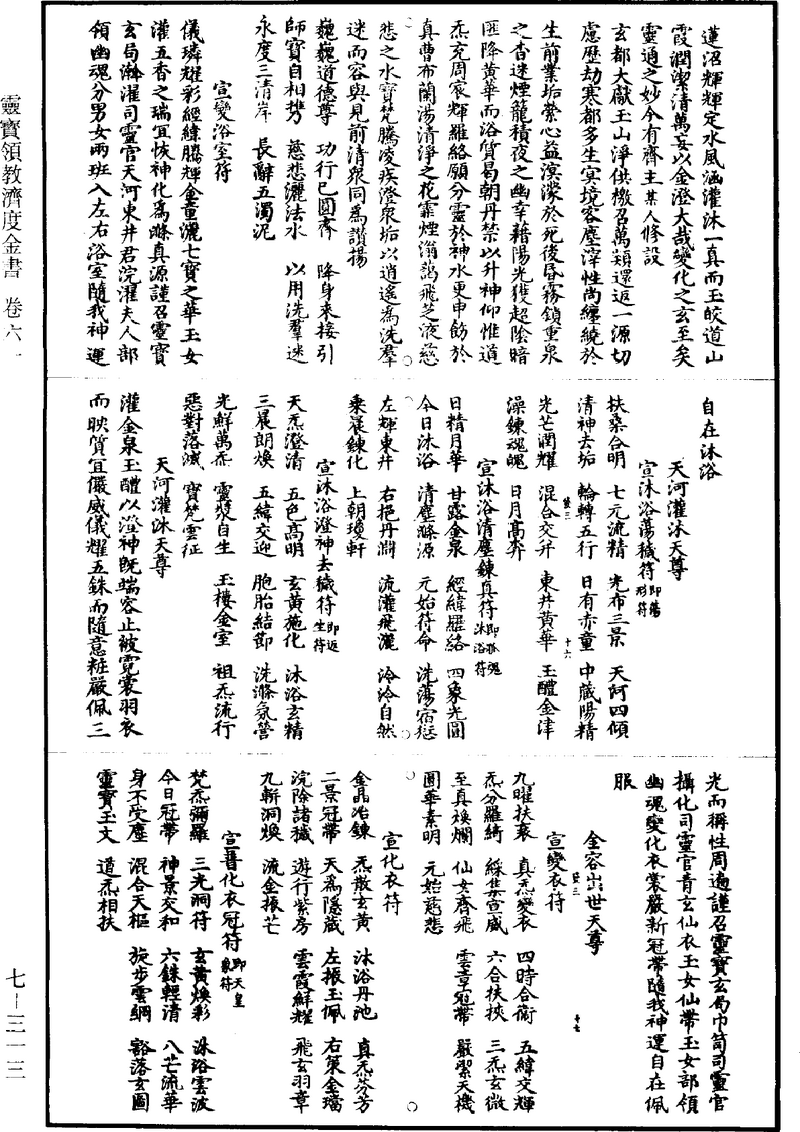 蓮沼輝輝定水風涵灌沐一真而玉皎道山
霞潤潔清萬妄以金澄大哉變化之玄至矣
靈通之妙今有齋主某人修設
玄都大獻玉山淨供檄召萬類還返一源切
慮歷劫寒都多生冥境客塵滓性尚纏繞於
生前業垢縈心益溟濛於死後昏霧鎖重泉
之杳迷煙籠積夜之幽幸藉陽光獲超陰暗
匪降黃華而浴質曷朝丹禁以升神仰惟道
炁充周宸輝羅絡願分靈於神水更申飭於
真曹布蘭湯清淨之花靄煙滃藹飛芝液慈
悲之水寶梵騰凌疾澄泉垢以逍遙為洗羣
迷而容與見前清衆同為讚揚
巍巍道德尊　功行已圓齊　降身來接引
師寶自相携　慈悲灑法水　以用洗羣迷
永度三清岸　長辭五濁泥
宣變浴室符
儀璘耀彩經緯騰輝金童灑七寶之華玉女
灌五香之瑞宜恢神化為滌真源謹召靈寶
玄局澣濯司靈官天河東井君浣濯夫人部
領幽魂分男女兩班入左右浴室隨我神運
自在沐浴
天河灌沐天尊
宣沐浴蕩穢符即蕩形符
扶桑合明　七元流精　光布三景　天河四傾
清神去垢　輪轉五行　日有赤童　中藏陽精
光芒潤耀　混合交并　東井黃華　玉醴金津
澡鍊魂魄　日月高奔
宣沐浴清塵鍊真符即孤魂沐浴符
日精月華　甘露金泉　經緯羅絡　四象光圓
今日沐浴　清塵滌源　元始符命　洗蕩宿愆
左輝東井　右挹丹淵　流灌飛灑　泠泠自然
乘晨鍊化　上朝瓊軒
宣沐浴澄神去穢符即返生符
天炁澄清　五色高明　玄黃施化　沐浴玄精
三晨朗煥　五緯交迎　胞胎結節　洗滌氛營
光鮮萬炁　靈漿自生　玉樓金室　祖炁流行
惡對落滅　寶梵雲征
天河灌沐天尊
灌金泉玉醴以澄神既端容止被霓裳羽衣
而映質宜儼威儀耀五銖而隨意粧嚴佩三
光而稱性周遍謹召靈寶玄局巾笥司靈官
攝化司靈官青玄仙衣玉女仙帶玉女部領
幽魂變化衣裳嚴新冠帶隨我神運自在佩
服
金容出世天尊
宣變衣符
九曜扶衰　真炁變衣　四時合衛　五緯交輝
炁分羅綺　綵集宣威　六合扶挾　三炁玄微
至真煥爛　仙女齊飛　雲章冠帶　嚴潔天機
圓華素明　元始慈悲
宣化衣符
金晶冶鍊　炁散玄黃　沐浴丹池　真炁芬芳
二景冠帶　天為隱藏　左振玉佩　右策金璫
浣除諸穢　遊行紫房　雲霞鮮耀　飛玄羽章
九斬洞煥　流金振芒
宣普化衣冠符即天皇象符
梵炁彌羅　三光洞符　玄黃煥彩　沐浴雲波
今日冠帶　神景交和　六銖輕清　八芒流華
身不受塵　混合天樞　旋步雲綱　豁落玄圖
靈寶玉文　道炁相扶
靈寶領教濟度金書　卷六一
七－三一三